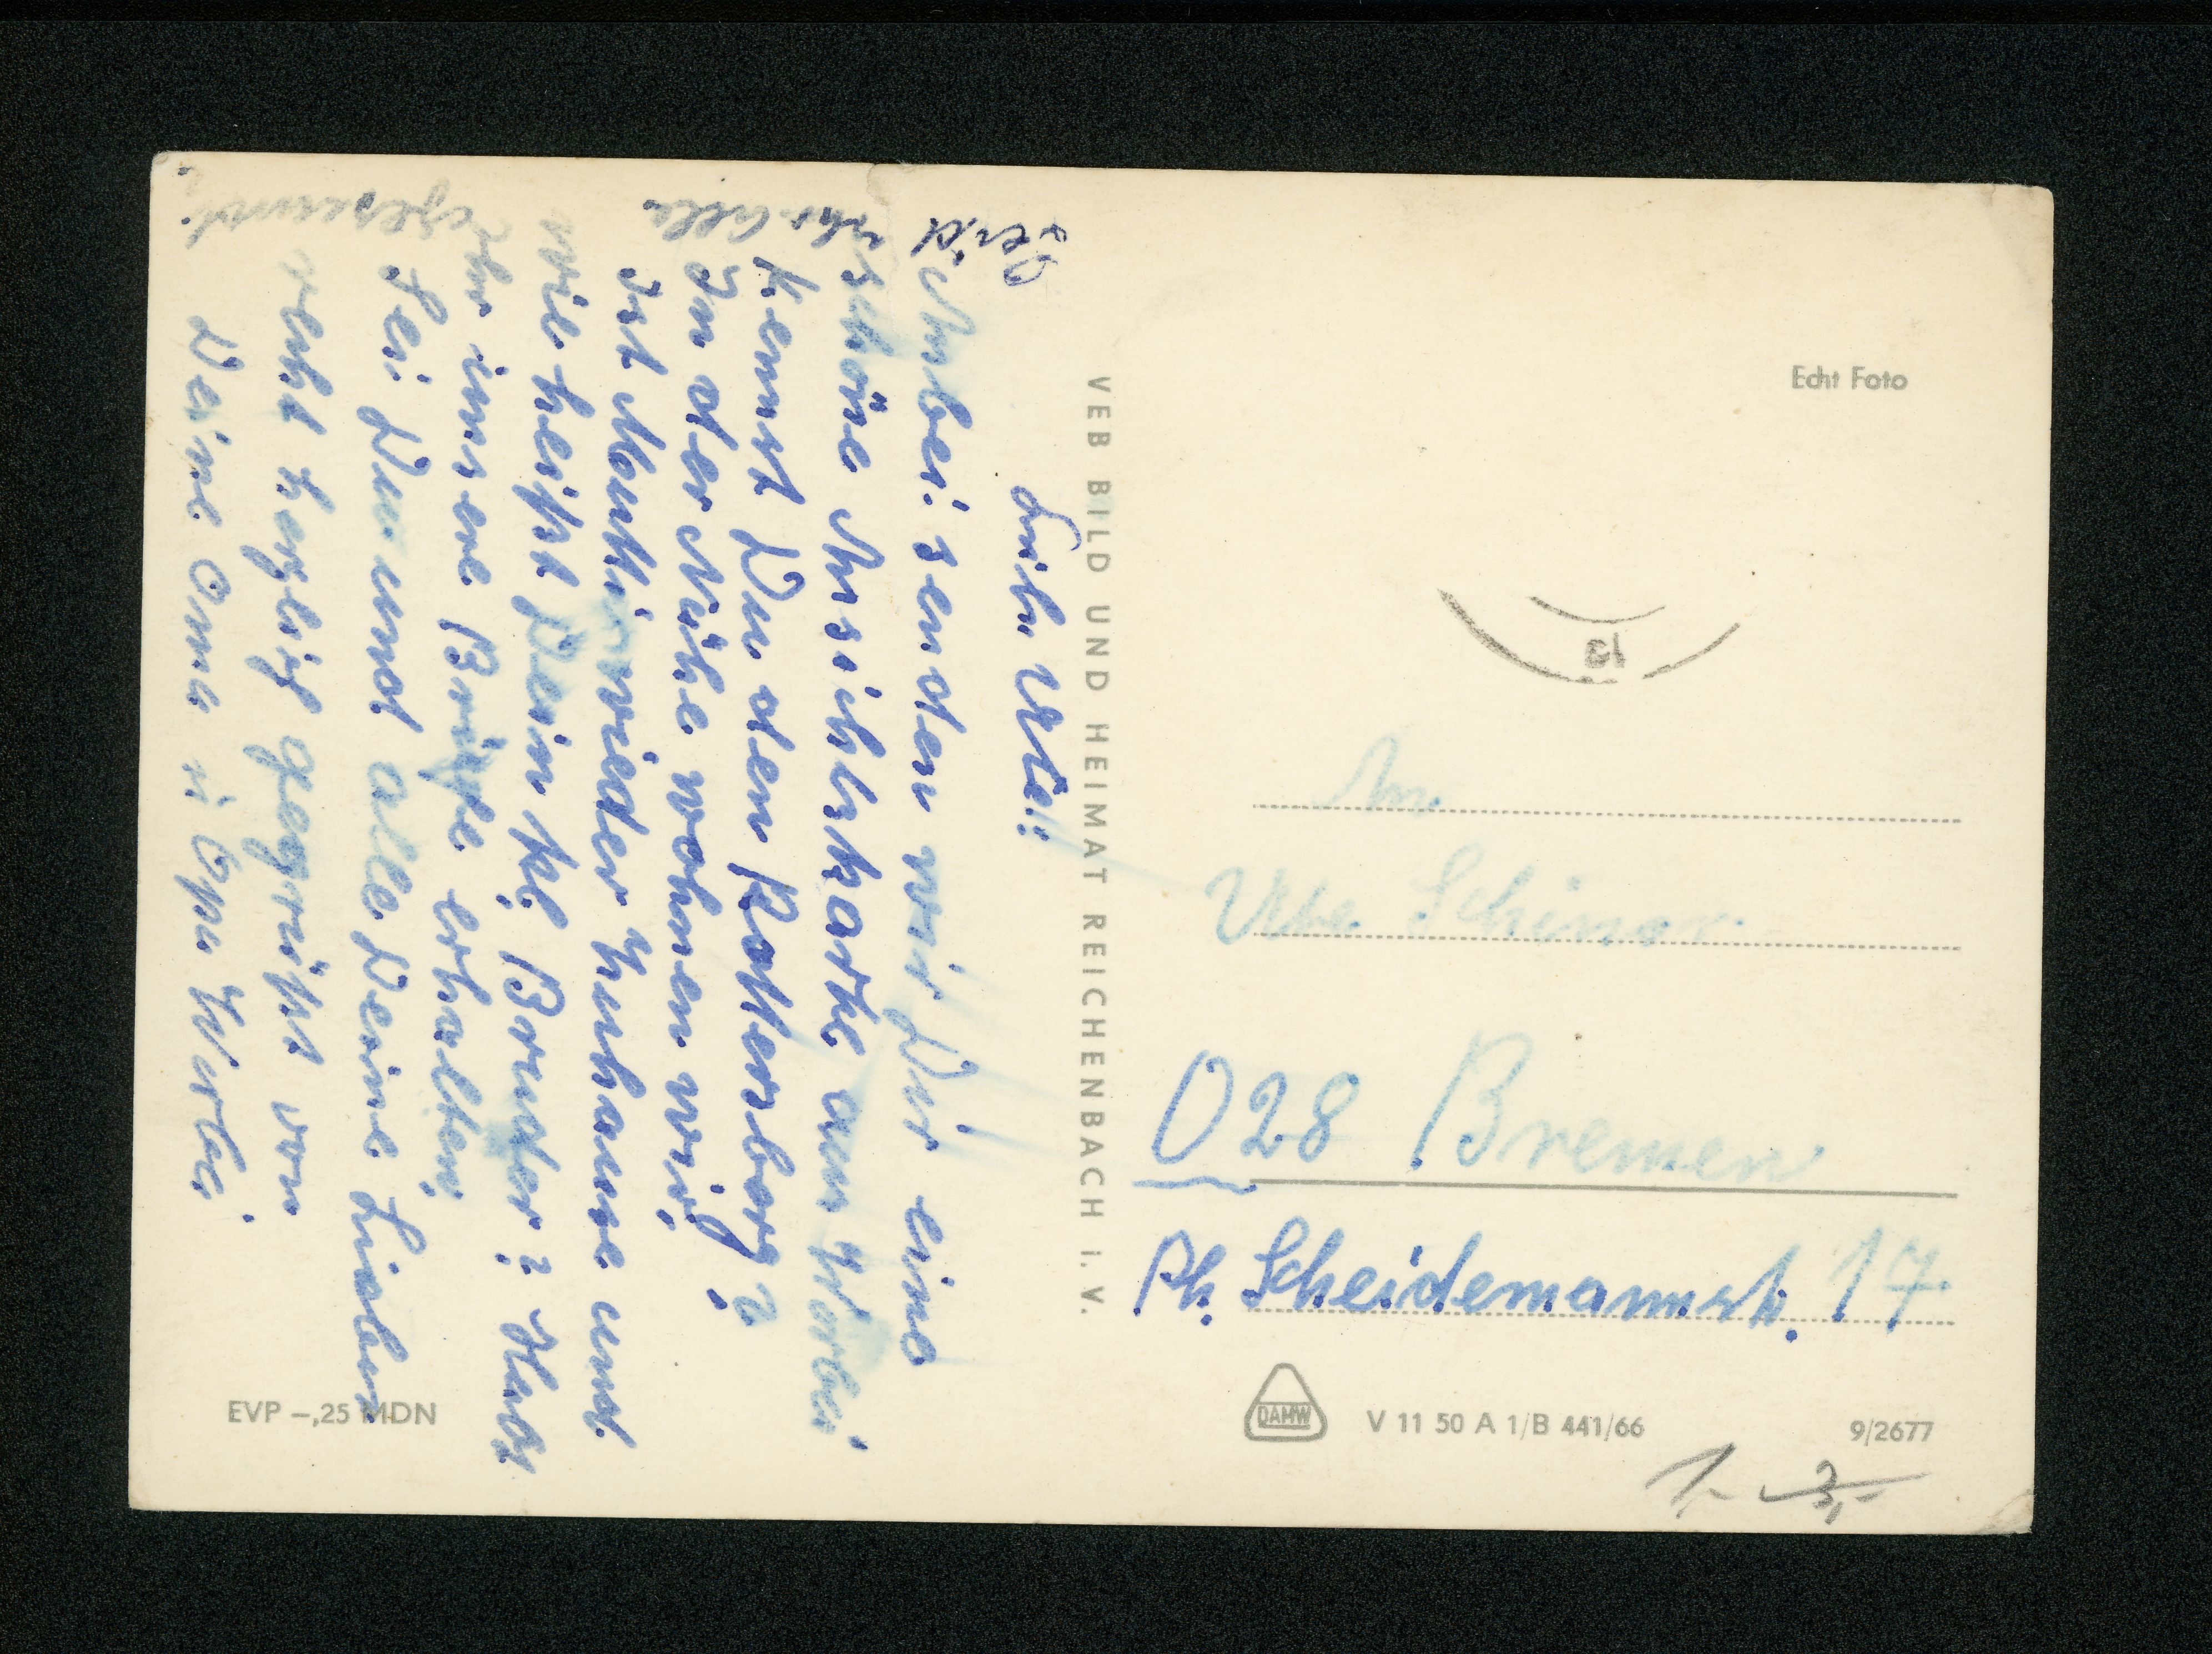 Liebe Ute!
Anbei senden wir Dir eine
schöne Ansichtskarte aus Worbis.
Kennst Du den Rottersberg?
In der Nähe wohnen wir.
Ist Mutti wieder zuhause und
wie heißt Dein kl. Bruder? Habt
Ihr unsere Briefe erhalten.
Sei Du und alle Deine Lieben
recht herzlich gegrüßt von
Deine Oma u Opa Worbis.
Seid Ihr alle
gesund?
VEB BILD UND HEIMAT REICHENBACH I. V.
EVP –,25 MDN
Echt Foto
13
An
Ute
028 Bremen
Ph. Scheidemannstr. 17
DAMW
V 11 50 A 1/B 441/66
9/2677
1,- 3,-